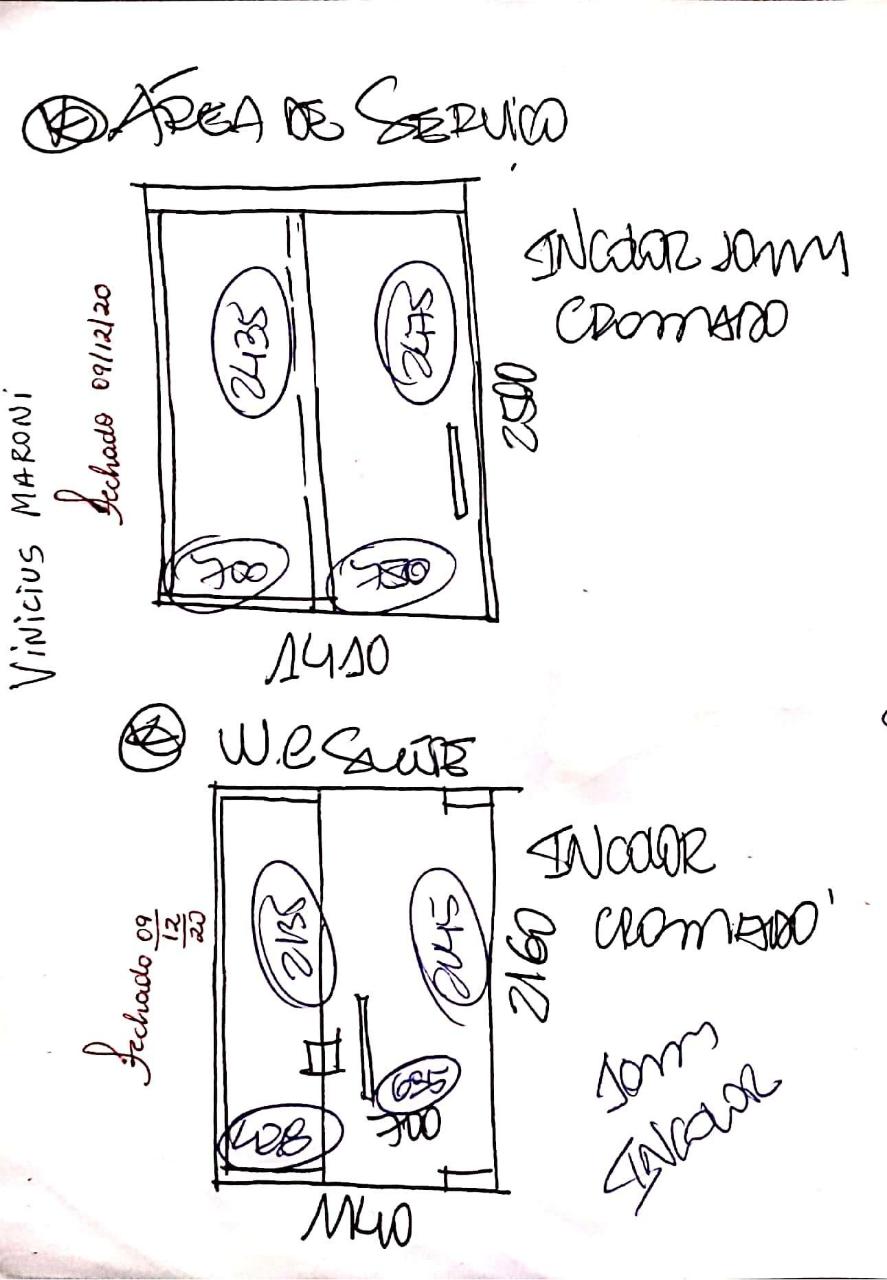 ÁREA DE SERVIÇO
INCOLOR 10mm
CROMADO
2435
2475
2500
700
1410
VINICIUS MARONI
Fechado 09/12/20
W.C SUÍTE
INCOLOR
CROMADO
2135
2145
2160
Fechado 09
12
20
695
700
428
1140
10mm
INCOLOR